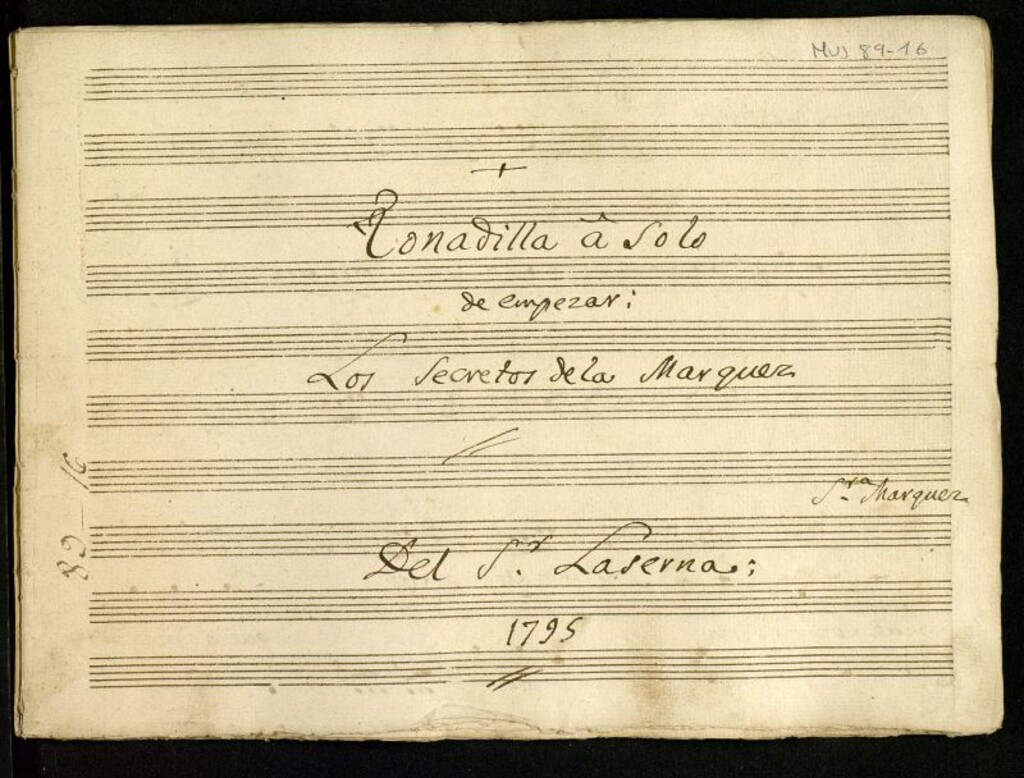 Mus 89-16
+
Tonadilla â Solo
de empezar:
Los Secretos de la Marquez
Sra Marquez
Del Sr. Laserna;
1795
89-16